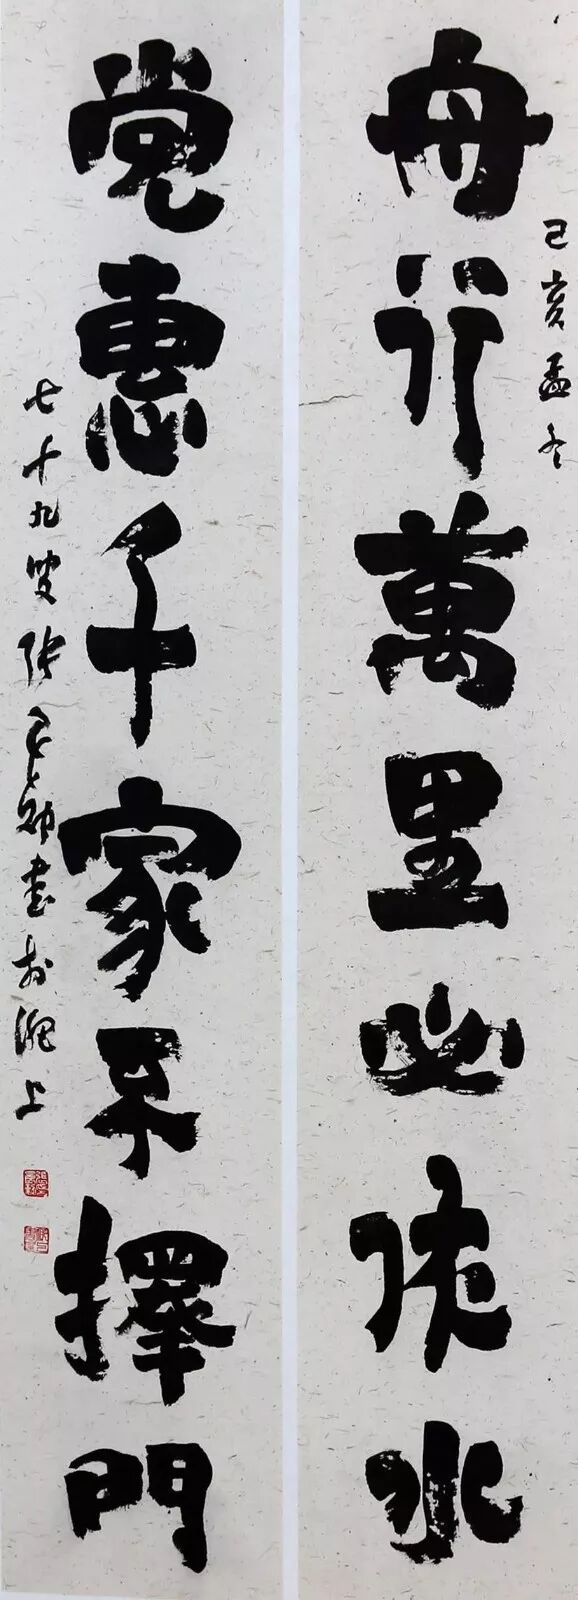 舟行萬里必依水
己亥孟冬
党惠千家不擇門
七十九叟张良勋書於淝上